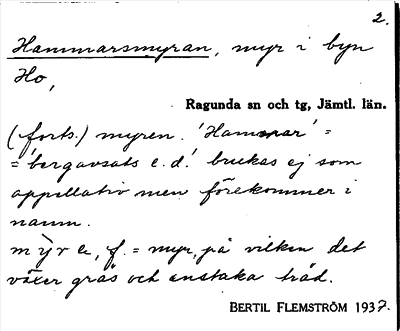 2.
Hammarsmyran, myr i byn
Ho,
Ragunda sn och tg, Jämtl. län.
(forts.) myren. 'Hammar' =
= 'bergavsats e.d.' brukas ej som
appellativ men förekommer i
namn.
f. = myr, på vilken det
växer gräs och enstaka träd.
BERTIL FLEMSTRÖM 1937.